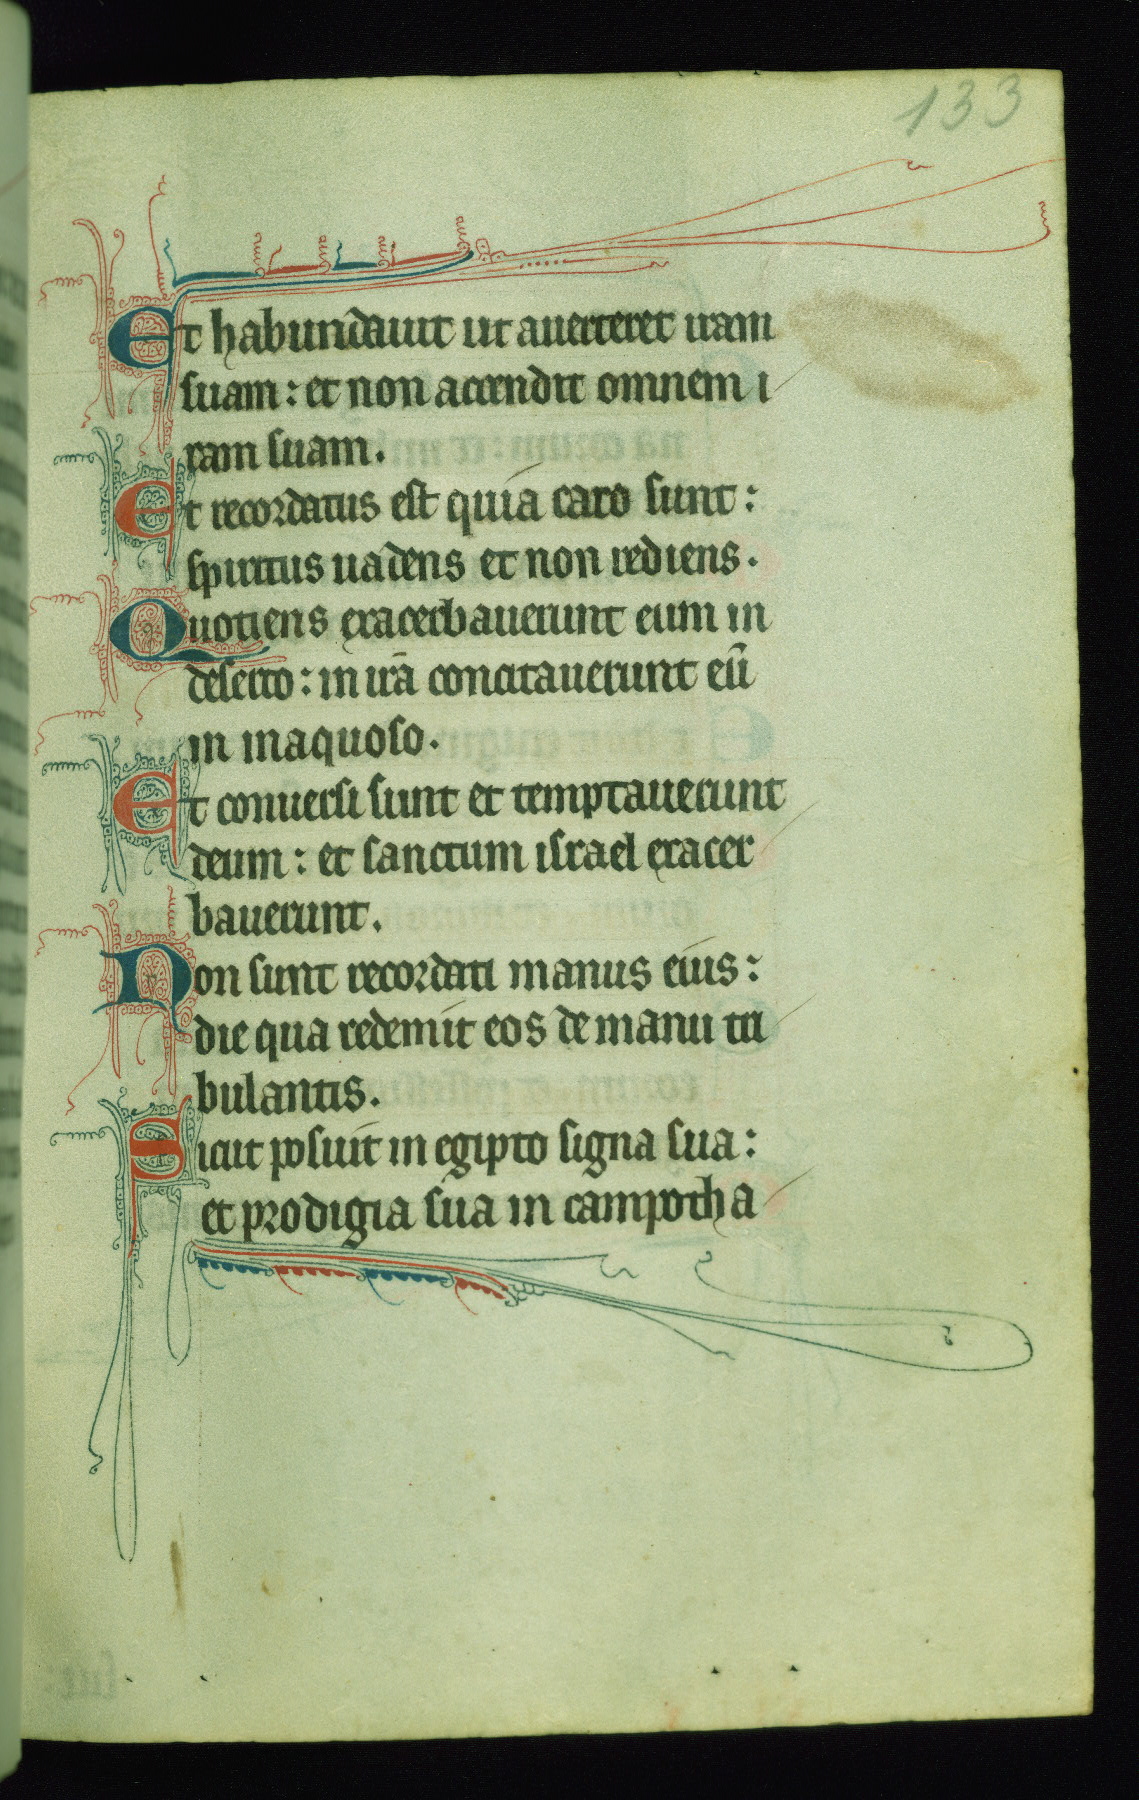 133
Et habundauit ut auerteret iram
suam : et non accendit omnem i
ram suam.
Et recordatus est quia caro sunt :
spiritus uadens et non rediens.
Quotiens exacerbauerunt eum in
deserto : in irā concitauerunt eū
in inaquoso.
Et conuersi sunt et temptauerunt
deum : et sanctum israel exacer
bauerunt.
Non sunt recordati manus eius :
die qua redemit eos de manu tri
bulantis.
Sicut posuit in egipto signa sua :
et prodigia sua in campo tha